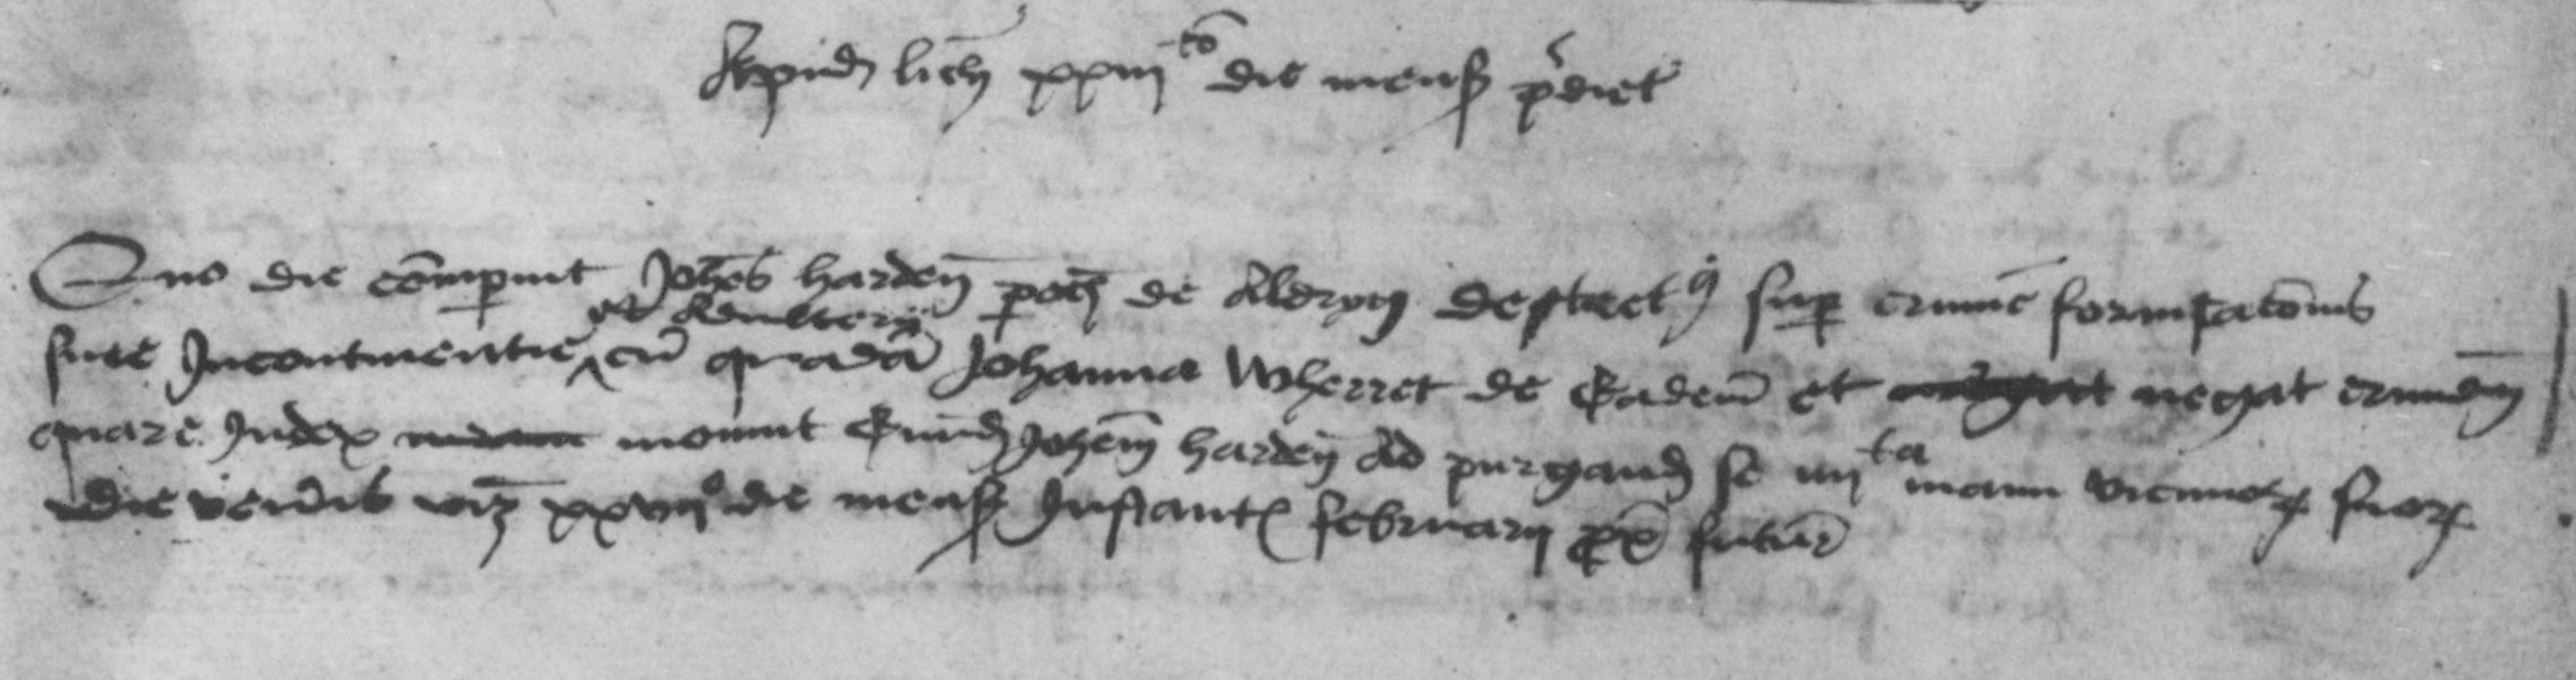 Apud lich xxiiijto die mensis predict
Quo die comperuit Johes harden poch de Alderyn detectus super crimine fornicatonis
et Adulterij
sive Incontinentie cum quadam Johanna Wherret de Eadem et negat crimen
quare Judex monuit Eundem Johem harden Ad purgand se iiijta manu vicinorum suorum
die veneris viz xxvijo die mensis Instantis februarij prox futur